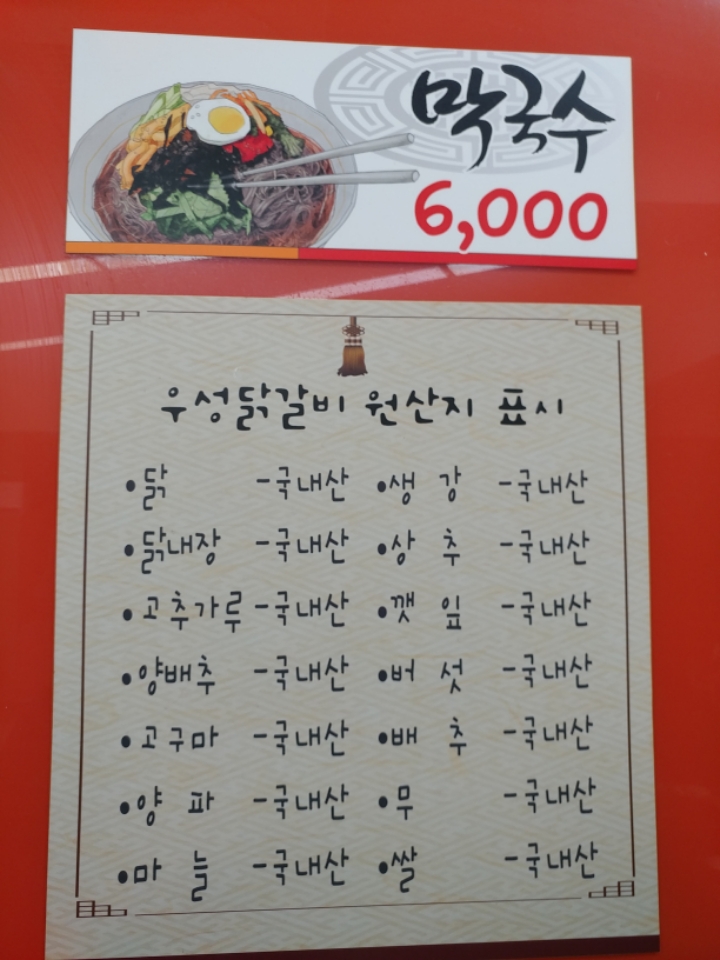 막국수
6,000
우성닭갈비 원산지 표시
•닭 -국내산 •생 강 -국내산
•닭내장 -국내산 •상 추 -국내산
•고추가루 -국내산 •깻 잎 -국내산
•양배추 -국내산 •버 섯 -국내산
•고구마 -국내산 •배 추 -국내산
•양 파 -국내산 •무 -국내산
•마 늘 -국내산 •쌀 -국내산